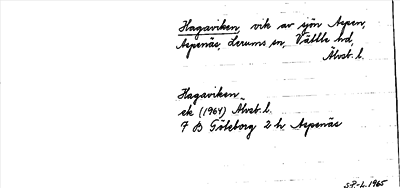 Hagaviken, vik av sjön Aspen,
Aspenäs, Lerums sn, Vättle hd,
Älvsb. l.
Hagaviken
ek (1964) Älvsb. l.
7 B Göteborg 2 h Aspenäs
S.P-L. 1965